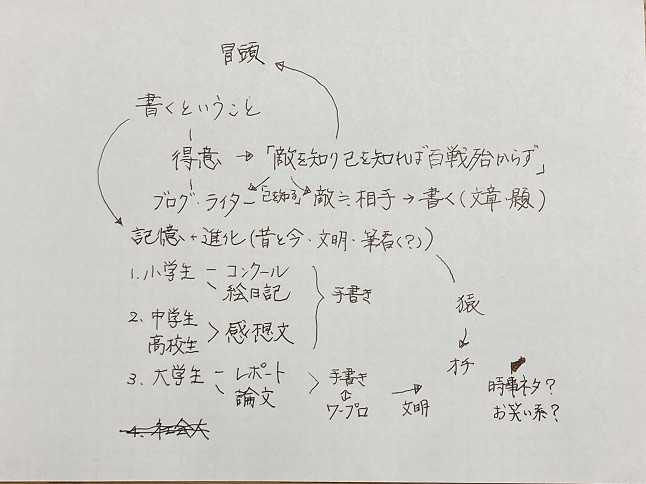 冒頭
書くということ
得意 → 「敵を知り己を知れば百戦殆からず」
ブログ・ライター 「己を知る」 敵≒相手→書く(文章・題)
記憶+進化(昔と今・文明・筆者(?))
1. 小学生 コンクール
絵日記
手書き
猿
2. 中学生
高校生 > 感想文
オチ
3. 大学生 レポート
論文
手書き
⇕
ワープロ
→ 文明
時事ネタ?
お笑い系?
4. 社会人